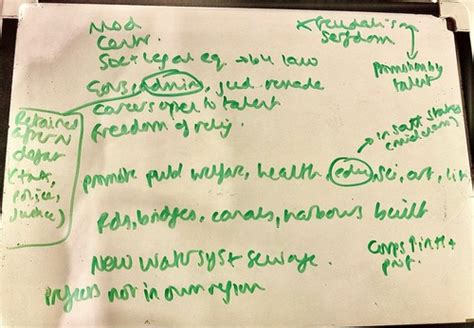 Mod
Centr.
Soc + Legal eq. → b4 law
Govt, admin, jud. remade
Careers open to talent
Freedom of relig.
x feudalism
serfdom
promotion by
talent
Retained
after N
defeat
(tax,
police,
justice)
→ in satt. states
(mid class)
promote publ welfare, health, edu, sci, art, lit
Rds, bridges, canals, harbours built
New water syst + sewage.
Prefects not in own region